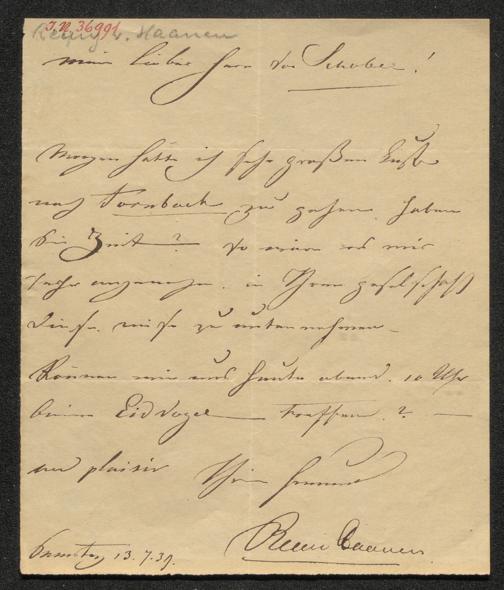 J.N. 36991
Remy v. Haanen
Mein lieber Herr von Schober!
Morgen hätte ich sehr großen Lust
nach Dornbach zu gehen. haben
Sie Zeit? So wäre es mir
sehr angenehm. in Ihrer geselschaft
diese zu unternehmen –
Können wir uns heute abend. 10 Uhr
beim Eisvogel — treffen.? —
au plaisir Ihr freund
Remi Haanen
Samstag 13.7.39.